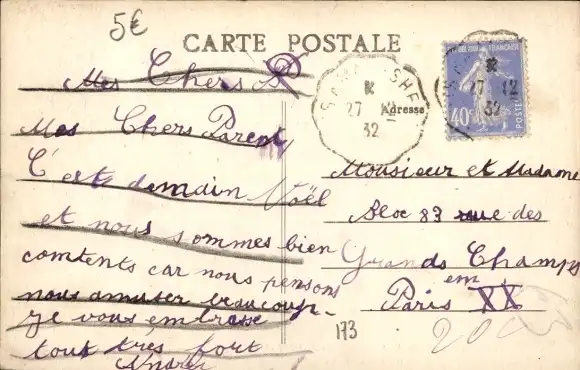 5€
CARTE POSTALE
Mes Chers P
Mes Chers Parents
C'est demain Noël
et nous sommes bien
comtents car nous pensons
nous amuser beaucoup.
Je vous embrasse
tous très fort
Adresse
27 12
32
FRANÇAISE
40c
POSTES
27 12
32
Monsieur et Madame
Bloc 83 rue des
Grands Champs
Paris XX em
20
173